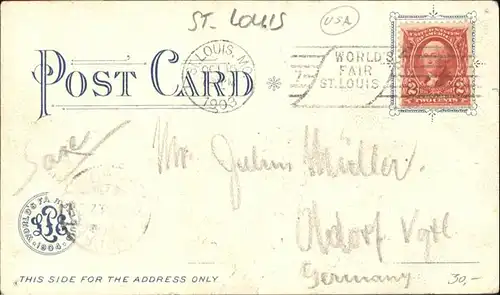 ST. LOUIS
USA
ST. LOUIS, MO.
1903
7-
WORLD'S
FAIR
ST. LOUIS
2 2
TWO CENTS
POST CARD
Mr. Julius Müller.
Adorf Vgtl.
Germany
WORLD'S FAIR
1904
THIS SIDE FOR THE ADDRESS ONLY
30,-